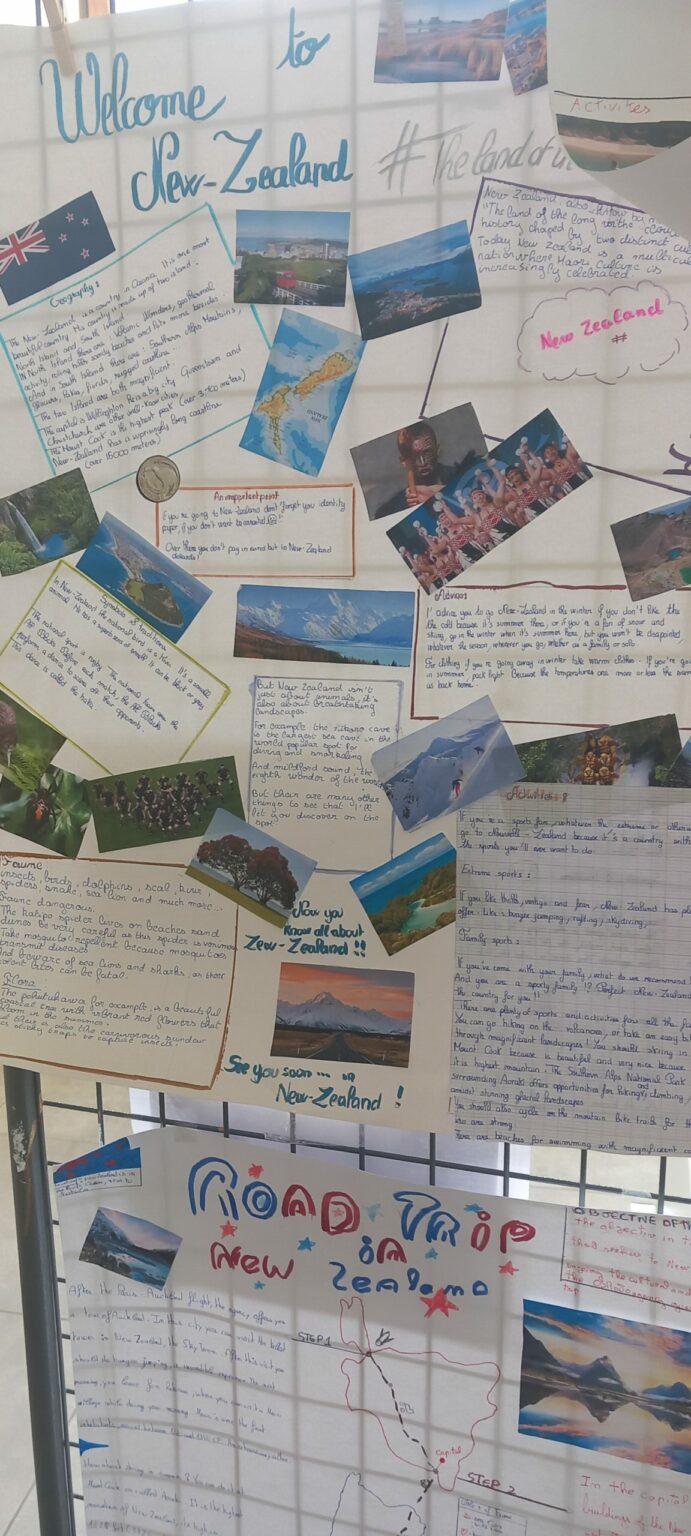 Welcome to
New-Zealand
#The land of
Activities
New Zealand, also know by
"The land of the long white cloud
history shaped by two distinct cul
Today New Zealand is a multicul
nation where Maori culture is
increasingly celebrated.
New Zealand
#
Geography:
The New-Zealand is a country in Oceania. It is one most
beautiful country. His country is made up of two island:
North Island and South Island
In North Island there are: Volcanic Wonders, geothermal
activity, rolling hills, sandy beaches and lots more besides
And in South Island there are: Southern Alps Mountains,
glaciers, lakes, fiords, rugged coastline...
The two island are both magnificent.
The capital is Wellington. He is a big city. Queenstown and
Christchurch are other well-know cities
The Mount Cook is the highest peak (over 3,700 meters)
New-Zealand has a surprisingly long coastline
(over 15000 meters)
An important point
If you're going to New-Zealand don't forget you identity
paper, if you don't want be arrested
Over there you don't pay in euro but in New-Zealand
dollards!
Symbols & traditions
In New-Zealand the national bird is a Kiwi. It's a small
animal. He has a good sens of smell. It can be black or grey.
The national sport is rugby. The national team are the
All Blacks. Before each match, the All Blacks
perform a dance to scare off their opponents.
This dance is called the haka.
Advices
I' advice you to go New-Zealand in the winter if you don't like the
the cold because it's summer there, or if you're a fan of snow and
skiing, go in the winter when it's summer here, but you won't be disappointed
whatever the season, wherever you go, whether as a family or solo.
For clothing if you're going away in winter take warm clothes. If you're goin
in summer, pack light. Because the temperatures are more or less the same
as back home.
But New Zealand isn't
just about animals, it's
also about breathtaking
landscapes.
For example the rikoriko cave
is the largest sea cave in the
world popular spot for
diving and snorkaling
And mildford sound, the
eighth wonder of the world
But their are many other
things to see that I'll
let you discover on the
spot
Activities:
If you're a sports fan, whatever the extreme or other
go to Nouvelle-Zealand because it's a country with
the sports you'll ever want to do.
Extreme sports:
If you like thrills, vertigo and fear, New Zealand has pl
offer. Like: bungee jumping, rafting, skydiving,
Family sports:
If you've come with your family, what do we recommend
And you are a sporty family!? Perfect New-Zealand
the country for you!!
There are plenty of sports and activities for all the f
You can go hiking on the volcanoes, or take an easy
through magnificent landscapes! You should skiing in
Mount Cook because is beautiful and very nice because
it is highest mountain. The Southern Alps National Park
surrounding Aoraki offers opportunities for hiking, climbing and
amidst stunning glacial landscapes
You should also cycle on the mountain bike trails for th
who are strong
There are beaches for swimming with magnificent
Faune
insects, birds, dolphins, seal, kiwi,
spiders, snake, sea lion and much more...
Faune dangerous.
The katipo spider lives on beaches sand
dunes be very careful as this spider is venimous
Take mosquito repellent because mosquitoes
transmit diseases
And beware of sea lions and sharks, as their
violent bites can be fatal.
Flora
The pohutukawa for example, is a beautiful
coastal tree with vibrant red flowers that
bloom in the summer.
there is also the carnivorous sundew
sticky snaps to capture insects.
Now you
know all about
Zew-Zealand!!
See you soon... in
New-Zealand!
ROAD TRIP
in
New Zealand
OBJECTIVE OF TH
the objective in
the
trip
After the Paris-Auckland flight, the agency offers you
a tour of Auckland. In this city, you can visit the tallest
tower in New Zealand, the Sky Tower. After this visit you
should do bungee jumping, a incredible experience. The next
morning, you leave for Rotorua, where you can visit a Maori
village while during your morning.
STEP 1
Capital
STEP 2
In the capital
buildings of the New